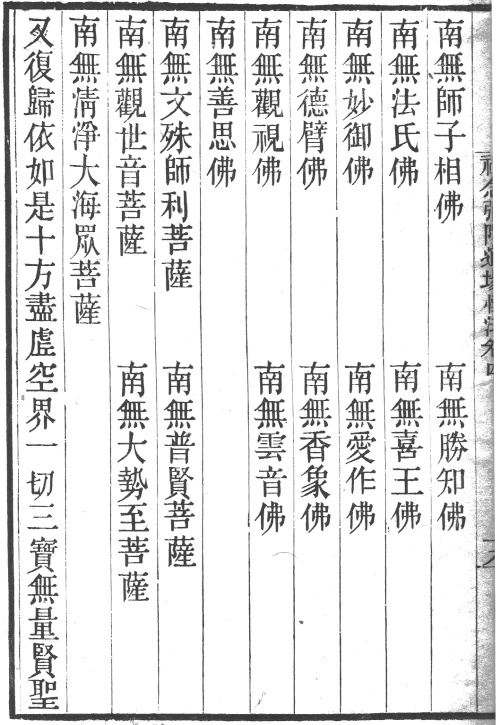 南無師子相佛　南無勝知佛
南無法氏佛　南無喜王佛
南無妙御佛　南無愛作佛
南無德臂佛　南無香象佛
南無觀視佛　南無雲音佛
南無善思佛
南無文殊師利菩薩　南無普賢菩薩
南無觀世音菩薩　南無大勢至菩薩
南無清淨大海眾菩薩
又復歸依如是十方盡虛空界一切三寶無量賢聖